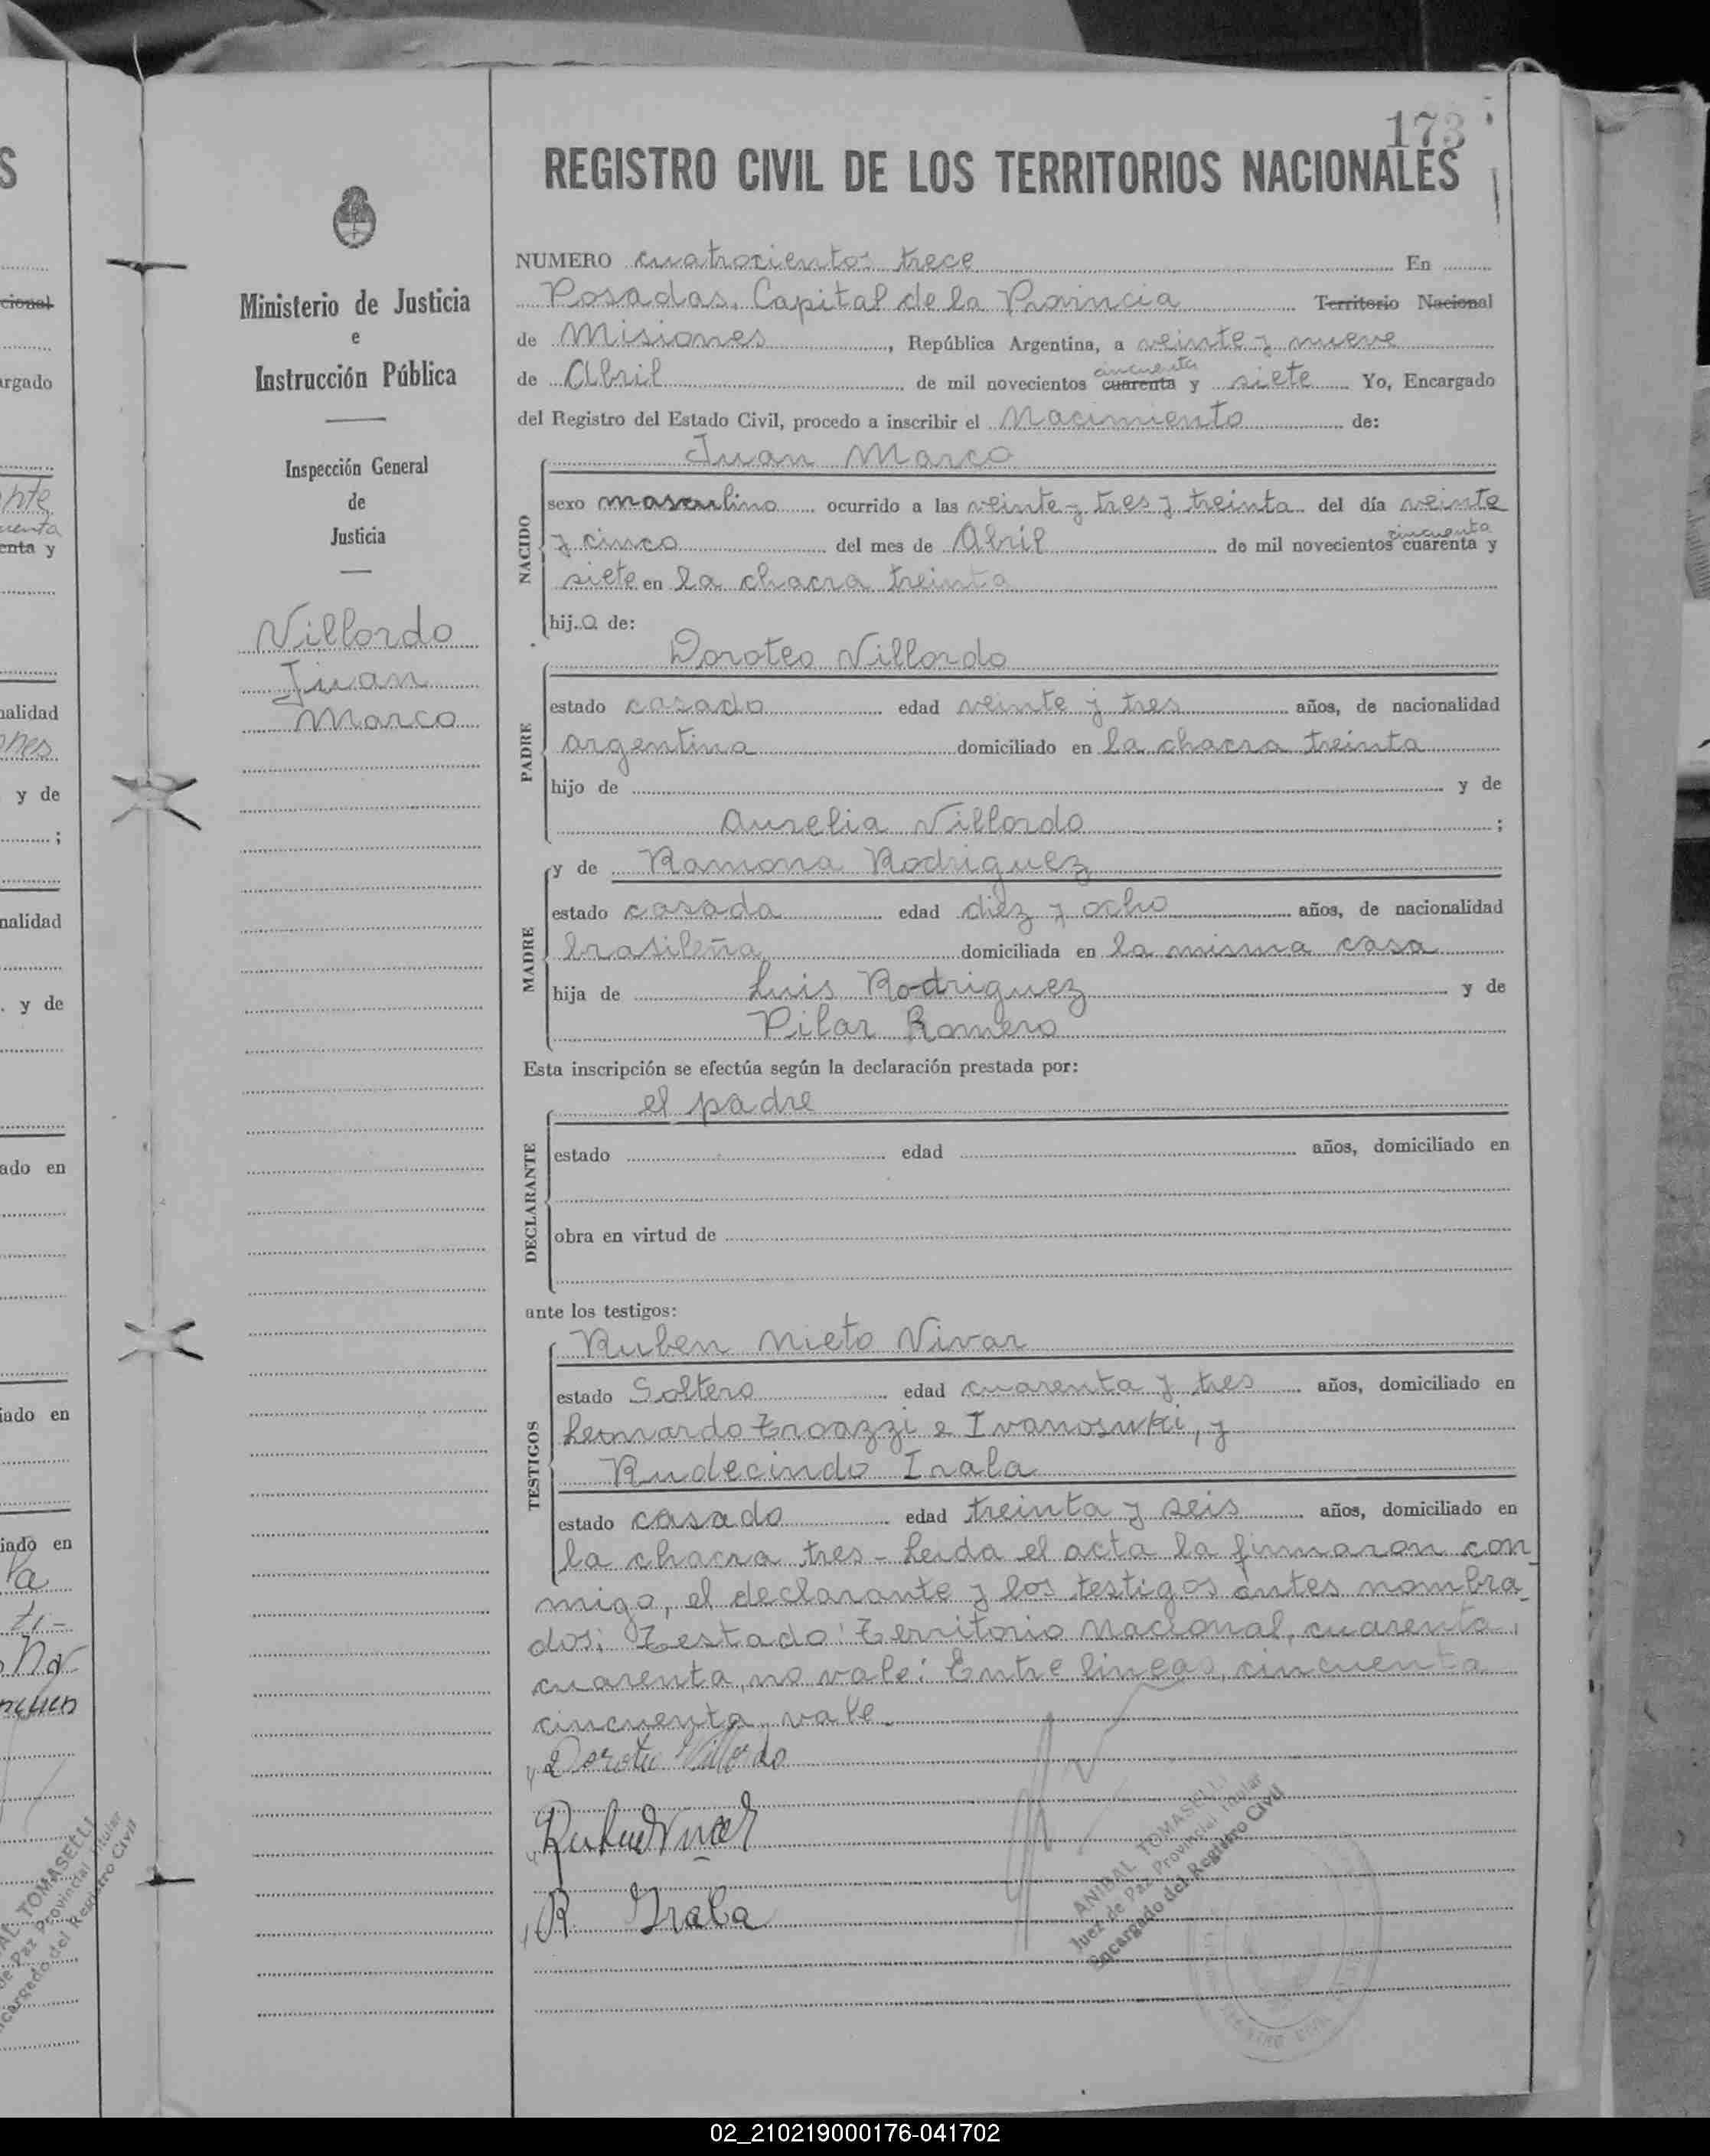 173
REGISTRO CIVIL DE LOS TERRITORIOS NACIONALES
Ministerio de Justicia
e
Instrucción Pública
Inspección General
de
Justicia
Villordo
Juan
Marco
NUMERO cuatrocientos trece En
Posadas, Capital de la Provincia Territorio Nacional
de Misiones, República Argentina, a veinte y nueve
cincuenta
de Abril de mil novecientos cuarenta y siete Yo, Encargado
del Registro del Estado Civil, procedo a inscribir el Nacimiento de:
Juan Marco
NACIDO
sexo masculino ocurrido a las veinte y tres y treinta del día veinte
cincuenta
y cinco del mes de Abril de mil novecientos cuarenta y
siete en la chacra treinta
hijo de:
Doroteo Villordo
PADRE
estado casado edad veinte y tres años, de nacionalidad
argentina domiciliado en la chacra treinta
hijo de y de
Aurelia Villordo ;
y de Ramona Rodriguez
MADRE
estado casada edad diez y ocho años, de nacionalidad
brasileña domiciliada en la misma casa
hija de Luis Rodriguez y de
Pilar Romero
Esta inscripción se efectúa según la declaración prestada por:
el padre
DECLARANTE
estado edad años, domiciliado en
obra en virtud de
ante los testigos:
Ruben Nieto Vivar
TESTIGOS
estado Soltero edad cuarenta y tres años, domiciliado en
e Ivanoswki, y
Rudecindo Irala
estado casado edad treinta y seis años, domiciliado en
la chacra tres - Leida el acta la firmaron con
migo, el declarante y los testigos antes nombra
dos: Testado: Territorio Nacional, cuarenta,
cuarenta, no vale: Entre lineas, cincuenta
cincuenta, vale.
Doroteo Villordo
R Irala
ANIBAL TOMASELLI
Juez de Paz Provincial Titular
Encargado del Registro Civil
02_210219000176-041702